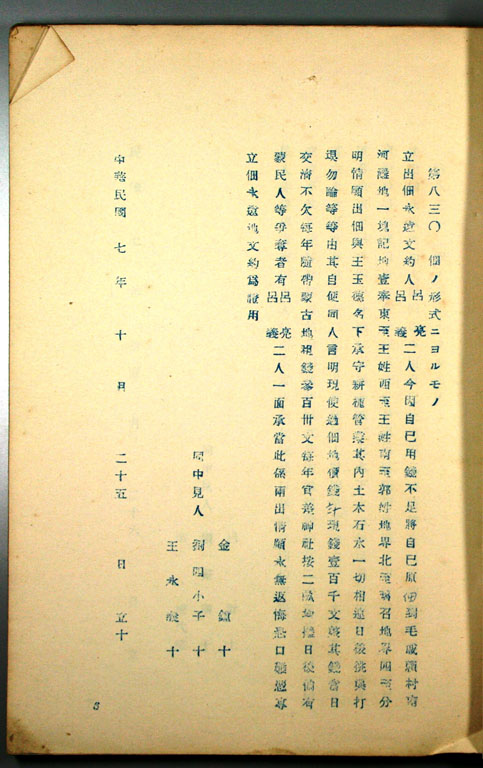 第八三〇 佃ノ形式ニヨルモノ
立出佃永遠文約人呂亮 呂義二人今因自己用錢不足將自己原佃到毛成顧村南
河灘地一塊記地壹段東至王姓西至王姓南至郭姓地界北至召地界四至分
明情願出佃與王玉名下承守耕種管業其內土木石水一切相連日後挑打
勿論等等由其自便同人言明現使過佃地價錢現錢壹百千文其錢當日
交清不欠每年隨帶蒙古地租錢百廿文每年官差神社按二日後倘有
蒙民人等爭奪者有呂亮 呂義二人一面承當此係兩出情願永無返悔恐口難憑專
立佃永遠地文約為證用
中華民國 七年 十月 二十五日 立十
同中見人
金 十
小子 十
王永 十